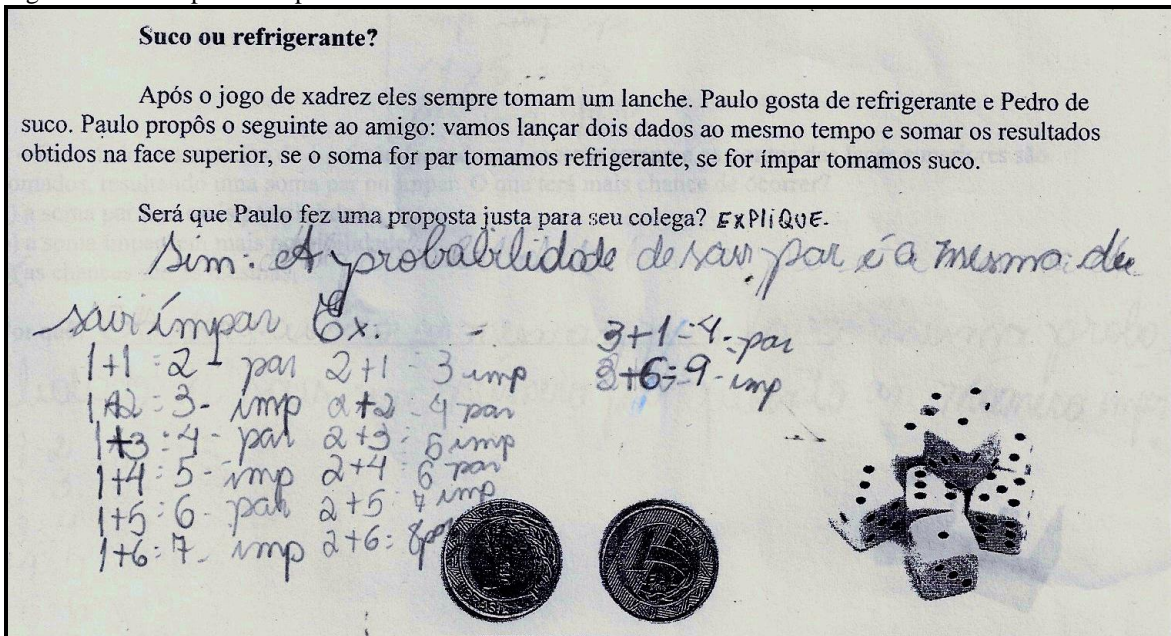 Suco ou refrigerante?
Após o jogo de xadrez eles sempre tomam um lanche. Paulo gosta de refrigerante e Pedro de
suco. Paulo propôs o seguinte ao amigo: vamos lançar dois dados ao mesmo tempo e somar os resultados
obtidos na face superior, se o soma for par tomamos refrigerante, se for ímpar tomamos suco.
Será que Paulo fez uma proposta justa para seu colega? EXPLiQUE.
Sim. A probabilidade de sair par é a mesma de
sair ímpar Ex:
1+1=2- par
1+2=3- imp
1+3=4- par
1+4=5-imp
1+5=6- par
1+6=7- imp
2+1=3-imp
2+2=4 par
2+3=5 imp
2+4=6 par
2+5=7 imp
2+6=8par
3+1=4-par
3+6=9-imp